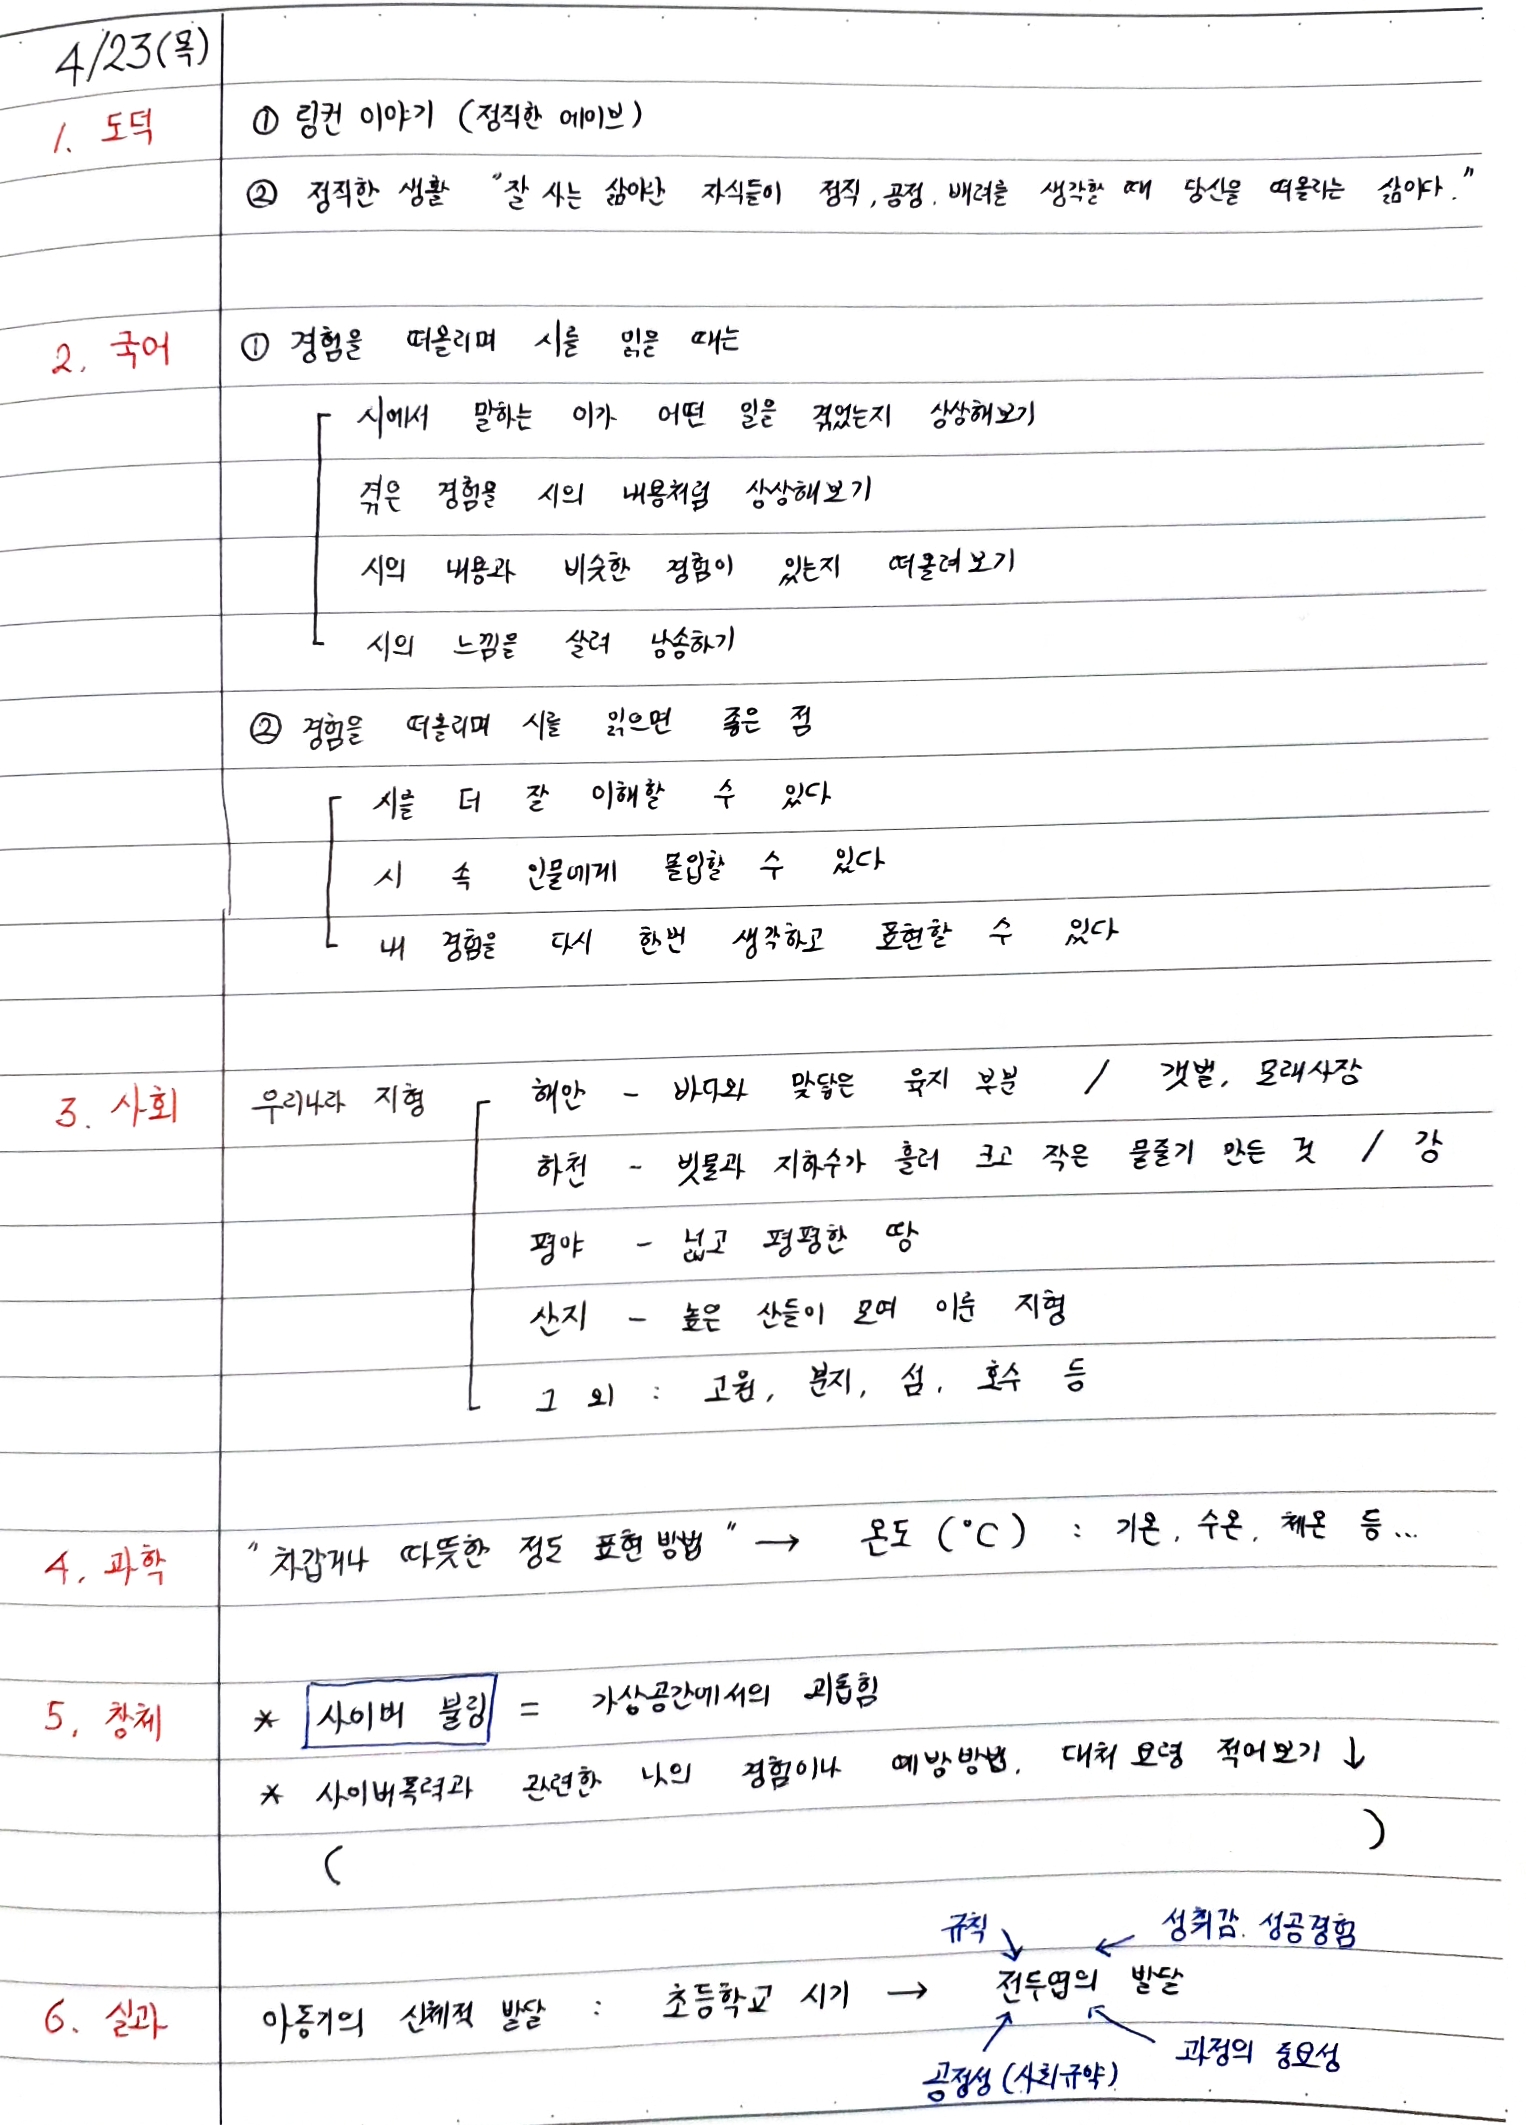 4/23(목)
1. 도덕 ① 링컨 이야기 (정직한 에이브)
② 정직한 생활 "잘 사는 삶이란 자식들이 정직, 공정, 배려를 생각할 때 당신을 떠올리는 삶이다."
2. 국어 ① 경험을 떠올리며 시를 읽을 때는
시에서 말하는 이가 어떤 일을 겪었는지 상상해보기
겪은 경험을 시의 내용처럼 상상해보기
시의 내용과 비슷한 경험이 있는지 떠올려보기
시의 느낌을 살려 낭송하기
② 경험을 떠올리며 시를 읽으면 좋은 점
시를 더 잘 이해할 수 있다
시 속 인물에게 몰입할 수 있다
내 경험을 다시 한번 생각하고 표현할 수 있다
3. 사회 우리나라 지형 해안 - 바다와 맞닿은 육지 부분 / 갯벌, 모래사장
하천 - 빗물과 지하수가 흘러 크고 작은 물줄기 만든 것 / 강
평야 - 넓고 평평한 땅
산지 - 높은 산들이 모여 이룬 지형
그 외 : 고원, 분지, 섬, 호수 등
4. 과학 "차갑거나 따뜻한 정도 표현 방법" → 온도 (℃) : 기온, 수온, 체온 등...
5. 창체 * 사이버 불링 = 가상공간에서의 괴롭힘
* 사이버폭력과 관련한 나의 경험이나 예방방법, 대처 요령 적어보기 ↓
( )
규칙 성취감, 성공경험
6. 실과 아동기의 신체적 발달 : 초등학교 시기 → 전두엽의 발달
공정성 (사회규약) 과정의 중요성